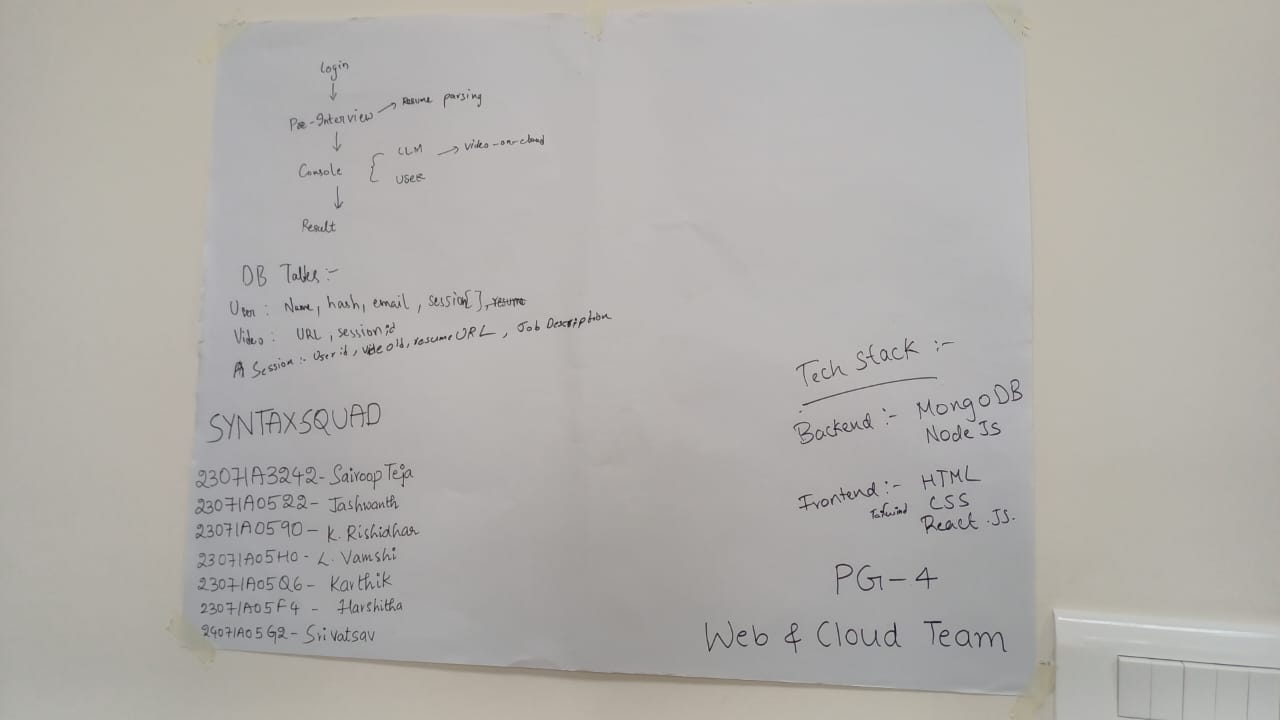 Login
Pre-Interview → Resume parsing
Console { LLM → video-on-cloud
USER
Result
DB Tables :-
User : Name, hash, email, session[], resume
Video : URL, session id
Session :- User id, video Id, resume URL, Job Description
SYNTAXSQUAD
23071A3242 - Sairoop Teja
23071A0522 - Jashwanth
23071A0590 - K. Rishidhar
23071A05H0 - L. Vamshi
23071A05Q6 - Karthik
23071A05F4 - Harshitha
24071A05G2 - Srivatsav
Tech Stack :-
Backend :- MongoDB
Node Js
Frontend :- HTML
Tailwind CSS
React .JS.
PG-4
Web & Cloud Team